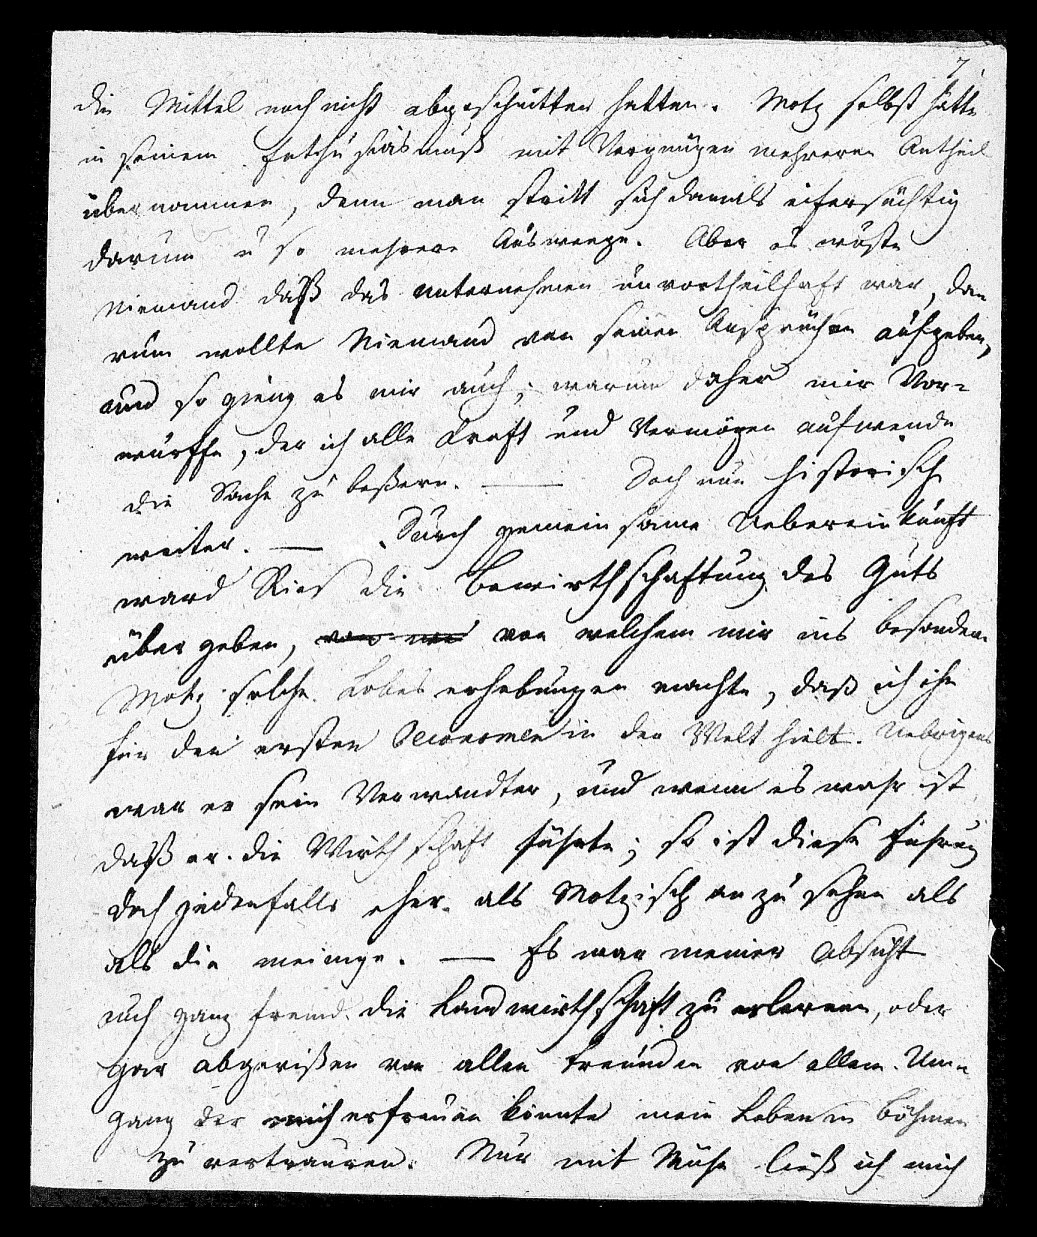 7.
die Mittel noch nicht abgeschnitten hatten. Motz selbst hatte
in seinem Enthusiasmuß mit Vergnügen mehreren Antheil
übernommen, denn man stritt sich damals eifersüchtig
darum u so mehrere Auswege. Aber es wuste
Niemand daß das unternehmen unvortheilhaft war, da-
rum wollte Niemand von seinen Ansprüchen aufgeben,
und so gieng es mir auch; warum daher mir Vor-
würffe, der ich alle Kraft und Vermögen aufwende
die Sache zu beßern. — Doch nun historisch
weiter. — Durch gemeinsame Uebereinkunft
ward Ries die Bewirthschaftung des Guts
übergeben, von welchem mir ins besondere
Motz solche Lobes erhebungen machte, daß ich ihn
für den ersten Oeconomen in der Welt hielt. Uebrigens
war er sein Verwandter, und wenn es wahr ist
daß er die Wirthschaft führte; so ist diese Führung
doch jedenfalls eher als Motzisch anzusehen als
als die meinige. — Es war meiner Absicht
auch ganz fremd die Landwirthschaft zu erlernen, oder
gar abgerißen von allen Freunden von allem Um-
gang der mich erfreuen könnte mein Leben in Böhmen
zu vertrauren. Nur mit Mühe ließ ich mich